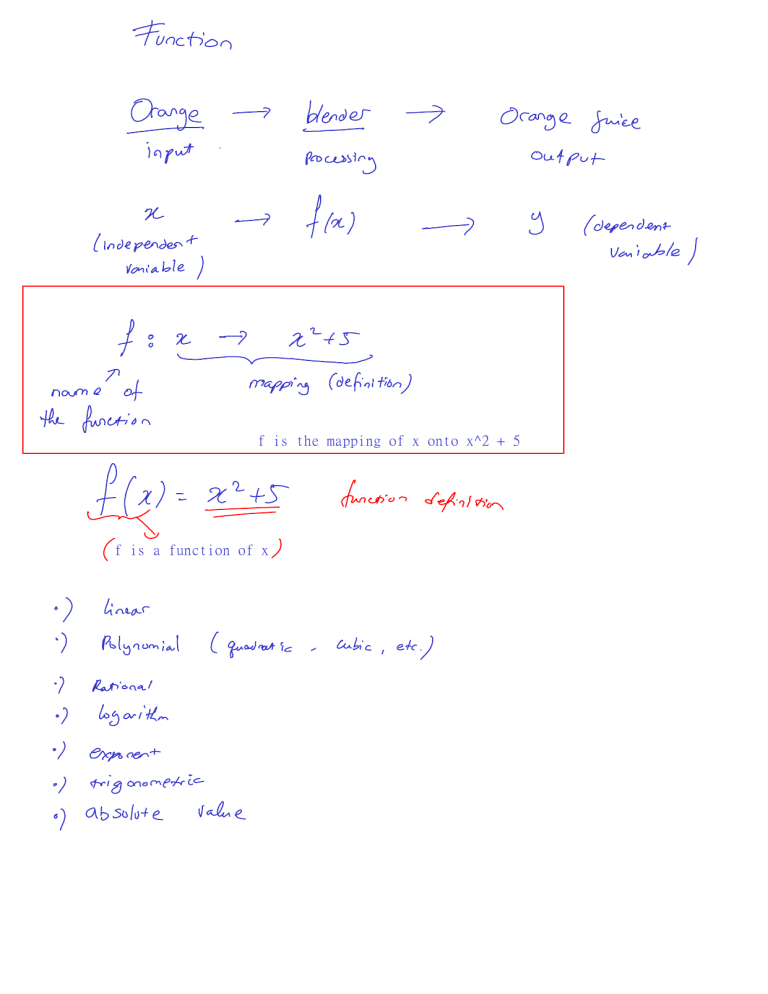 Function
Orange → blender → Orange juice
input processing output
x → f(x) → y (dependent
(independent variable)
variable)
f : x → x²+5
name of mapping (definition)
the function
f is the mapping of x onto x^2 + 5
f(x) = x²+5 function definition
(f is a function of x)
•) linear
•) Polynomial (quadratic, cubic, etc.)
•) Rational
•) logarithm
•) exponent
•) trigonometric
•) absolute value